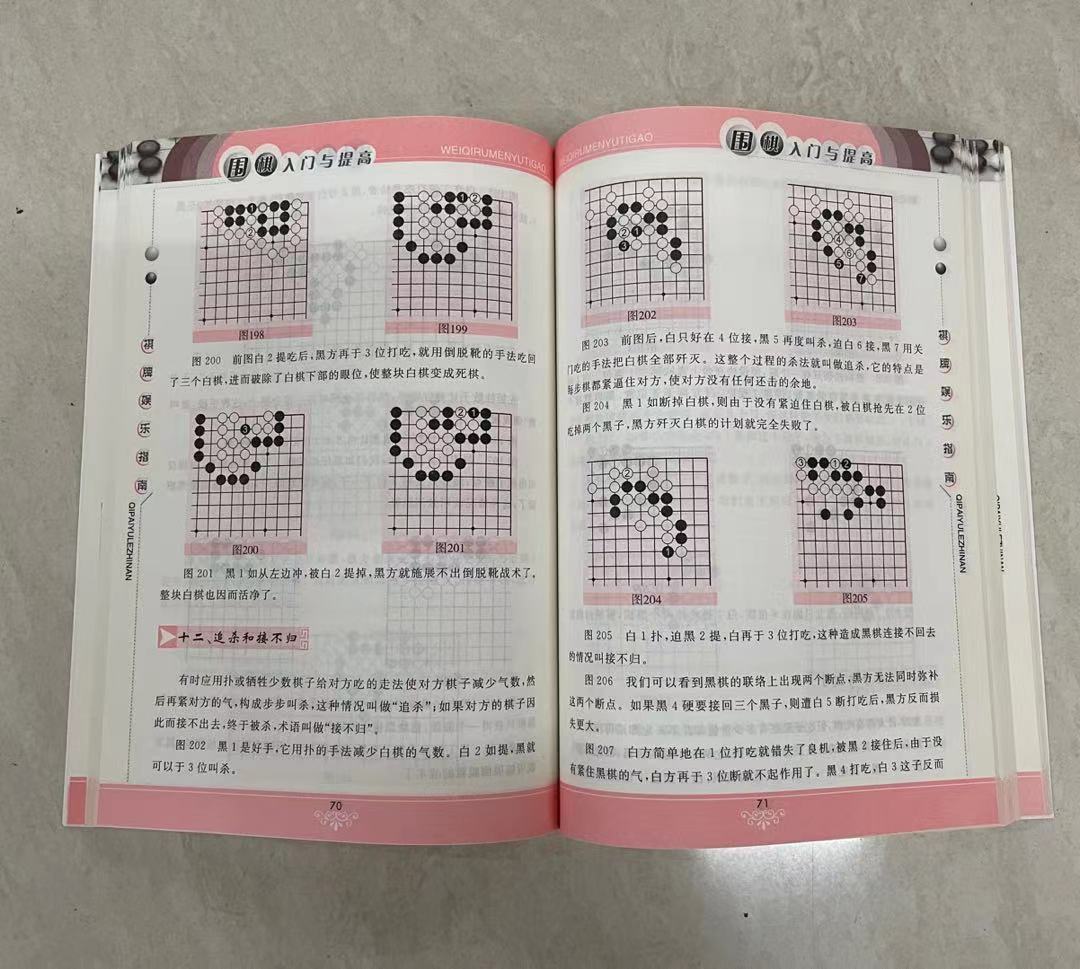 围棋入门与提高
WEIQIRUMENYUTIGAO
图198
图199
图 200 前图白 2 提吃后,黑方再于 3 位打吃,就用倒脱靴的手法吃回
了三个白棋,进而破除了白棋下部的眼位,使整块白棋变成死棋。
图200
图201
图 201 黑 1 如从左边冲,被白 2 提掉,黑方就施展不出倒脱靴战术了,
整块白棋也因而活净了。
十二、追杀和接不归
有时应用扑或牺牲少数棋子给对方吃的走法使对方棋子减少气数,然
后再紧对方的气,构成步步叫杀,这种情况叫做“追杀”;如果对方的棋子因
此而接不出去,终于被杀,术语叫做“接不归”。
图 202 黑 1 是好手,它用扑的手法减少白棋的气数。白 2 如提,黑就
可以于 3 位叫杀。
棋牌娱乐指南
QIPAIYULEZHINAN
70
WEIQIRUMENYUTIGAO
围棋入门与提高
图202
图203
图 203 前图后,白只好在 4 位接,黑 5 再度叫杀,迫白 6 接,黑 7 用关
门吃的手法把白棋全部歼灭。这整个过程的杀法就叫做追杀,它的特点是
每步棋都紧逼住对方,使对方没有任何还击的余地。
图 204 黑 1 如断掉白棋,则由于没有紧迫住白棋,被白棋抢先在 2 位
吃掉两个黑子,黑方歼灭白棋的计划就完全失败了。
图204
图205
图 205 白 1 扑,迫黑 2 提,白再于 3 位打吃,这种造成黑棋连接不回去
的情况叫接不归。
图 206 我们可以看到黑棋的联络上出现两个断点,黑方无法同时弥补
这两个断点。如果黑 4 硬要接回三个黑子,则遭白 5 断打吃后,黑方反而损
失更大。
图 207 白方简单地在 1 位打吃就错失了良机,被黑 2 接住后,由于没
有紧住黑棋的气,白方再于 3 位断就不起作用了。黑 4 打吃,白 3 这子反而
棋牌娱乐指南
QIPAIYULEZHINAN
71